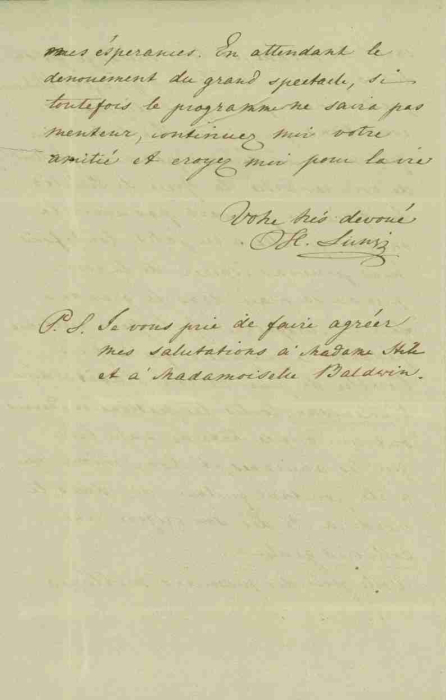 mes ésperances. En attendant le
denouement du grand spectacle, si
toutefois le programme ne saira pas
menteur, continuez mir votre
amitié et croyez mir pour la vie
Votre très devoué
St. Lunzi
P.S. Je vous prie de faire agréer
mes salutations à Madame
et à Madamoiselle Baldwin.